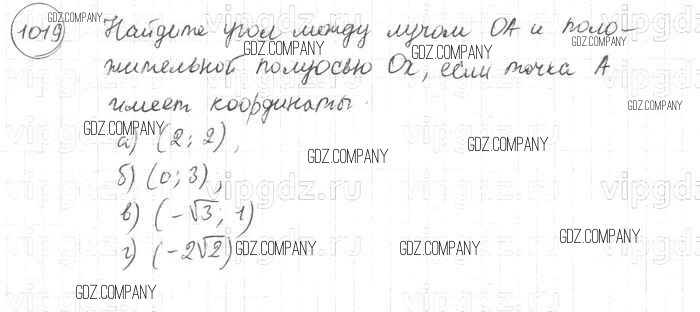 1019 Найдите угол между лучом OA и поло-
жительной полуосью Ox, если точка A
имеет координаты.
а) (2; 2),
б) (0; 3),
в) (-√3; 1)
г) (-2√2)
GDZ.COMPANY
GDZ.COMPANY
GDZ.COMPANY
GDZ.COMPANY
GDZ.COMPANY
GDZ.COMPANY
GDZ.COMPANY
GDZ.COMPANY
GDZ.COMPANY
GDZ.COMPANY
GDZ.COMPANY
GDZ.COMPANY
GDZ.COMPANY
vipgdz.ru
vipgdz.ru